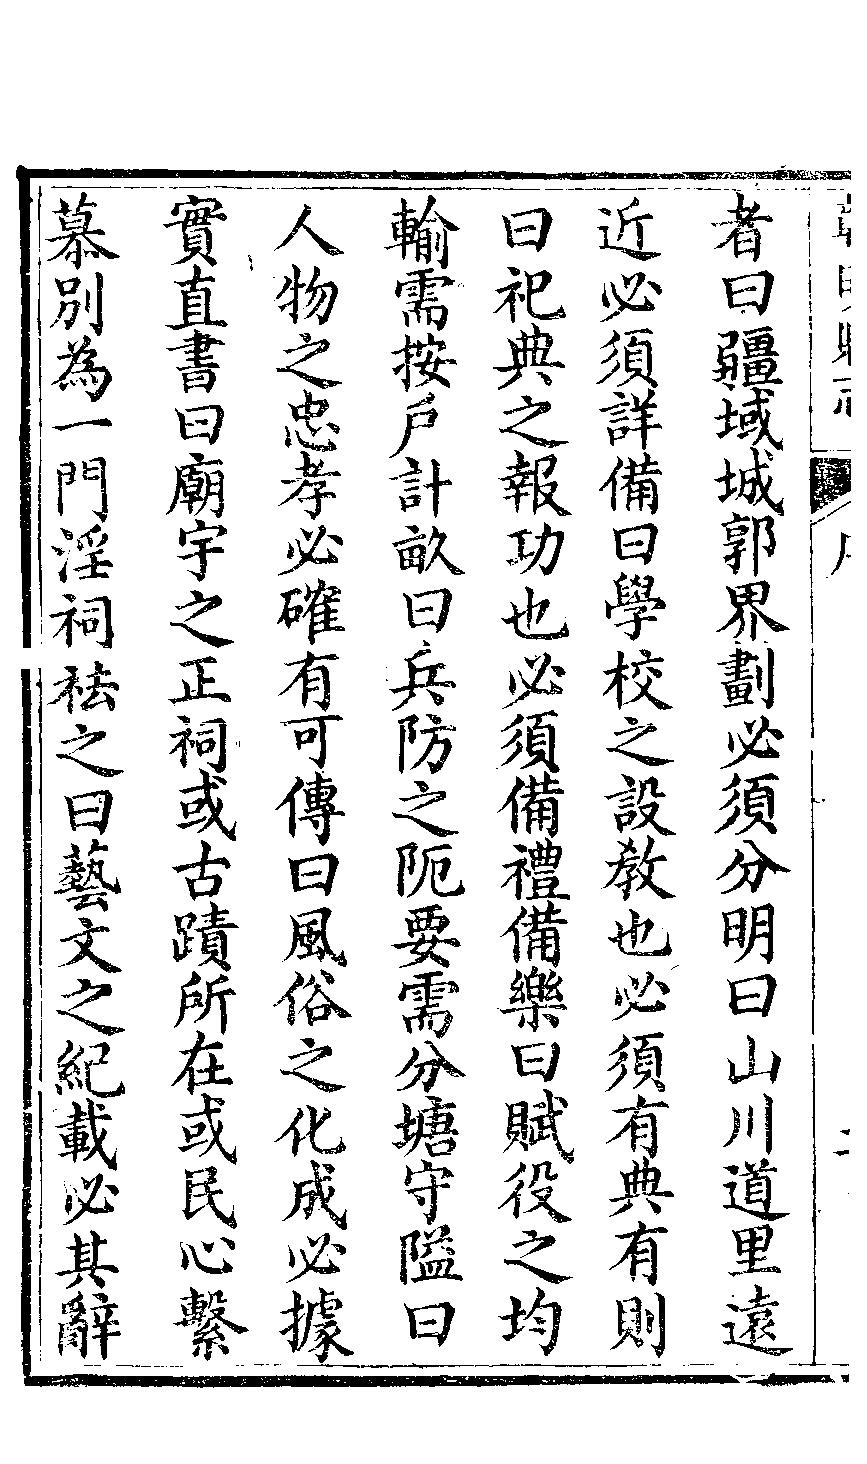 者曰疆域城郭界劃必須分明曰山川道里遠
近必須詳備曰學校之設教也必須有典有則
曰祀典之報功也必須備禮備樂曰賦役之均
輸需按戶計畝曰兵防之阨要需分塘守隘曰
人物之忠孝必確有可傳曰風俗之化成必據
實直書曰廟宇之正祠或古蹟所在或民心繫
慕別為一門淫祠祛之曰藝文之紀載必其辭